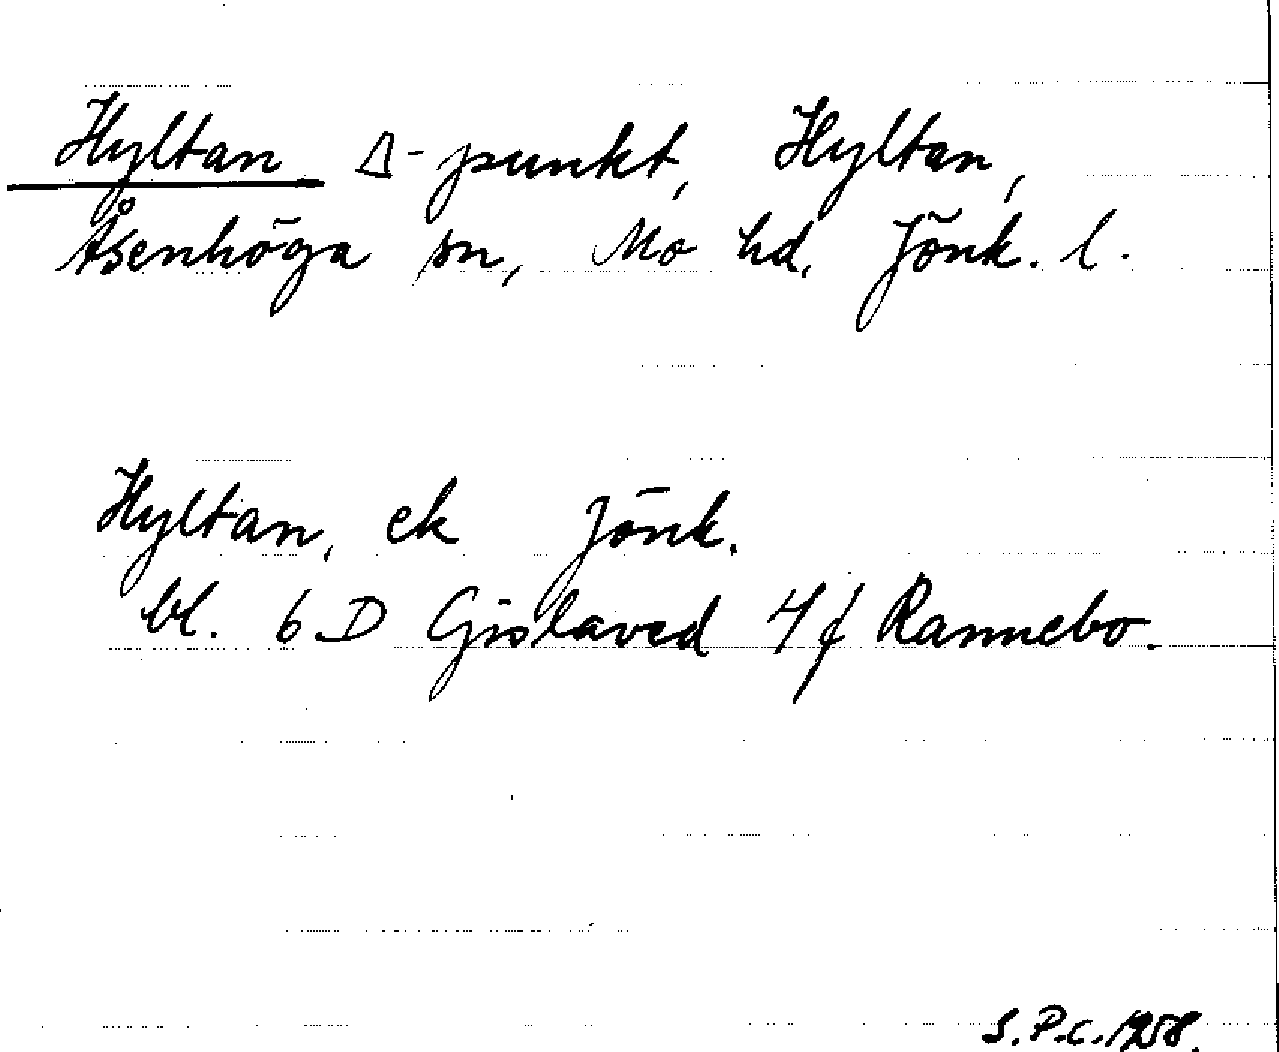 Hyltan Δ-punkt, Hyltan,
Åsenhöga sn, Mo hd. Jönk. l.
Hyltan, ek Jönk.
bl. 6 D Gislaved 4f Rannebo.
S.P.C. 1958.